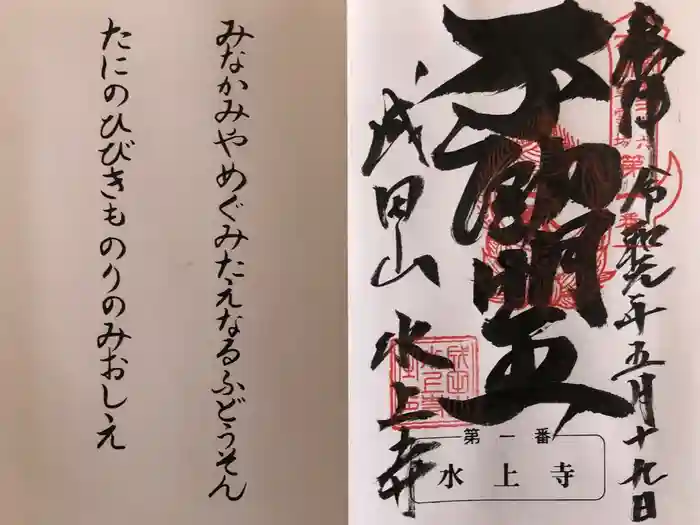 みなかみやめぐみたえなるふどうそん
たにのひびきものりのみおしえ
奉拝
令和元年五月十九日
不動明王
成田山 水上寺
第一番
水上寺